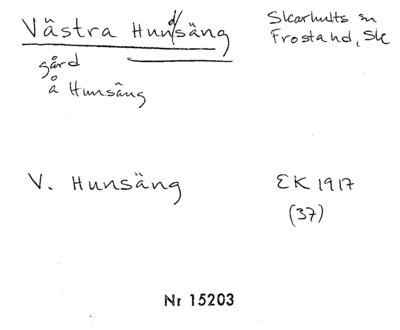 Västra Hundsäng
Skarhults sn
Frosta hd, Sk
gård
å Hunsäng
V. Hunsäng
EK 1917
(37)
Nr 15203